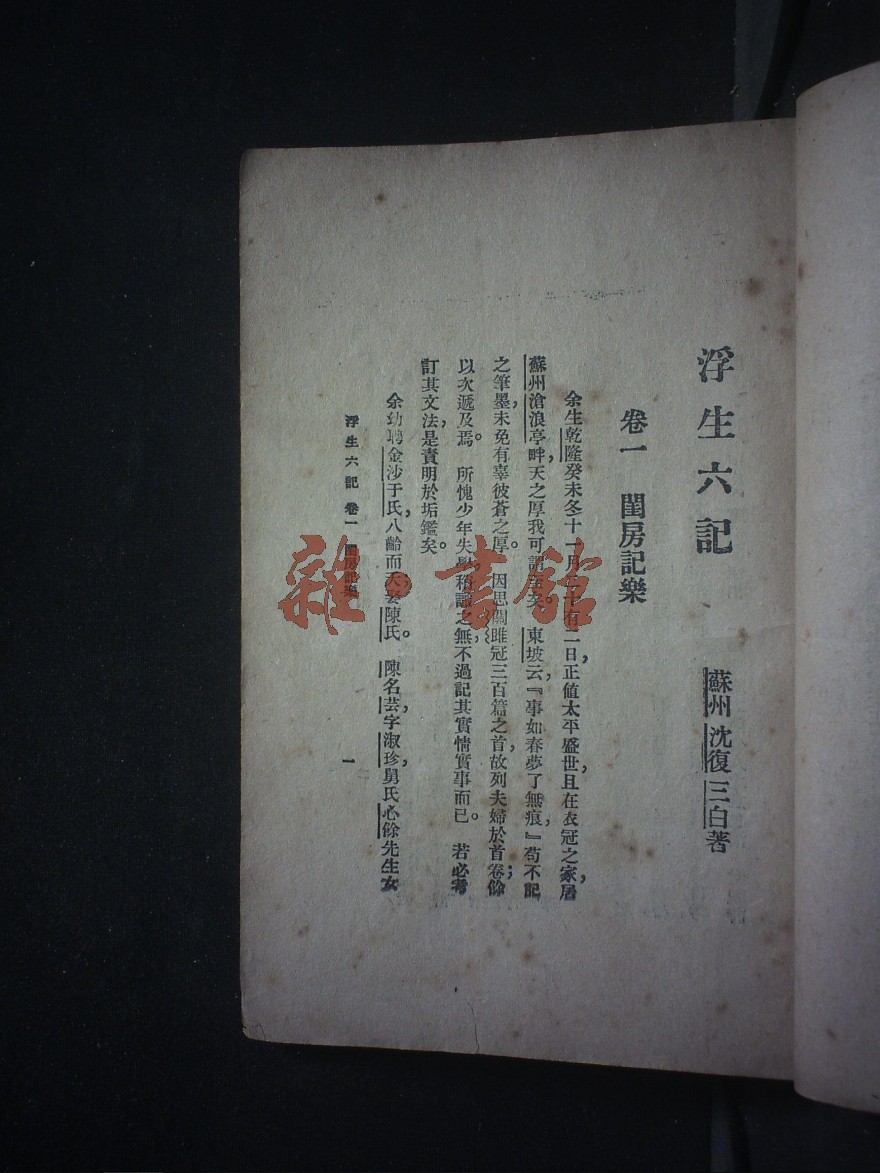 浮生六記
蘇州沈復三白著
卷一 閨房記樂
余生乾隆癸未冬十一月二十有二日,正值太平盛世,且在衣冠之家,居
蘇州滄浪亭畔,天之厚我可謂至矣。東坡云,『事如春夢了無痕,』苟不記
之筆墨,未免有辜彼蒼之厚。因思關雎冠三百篇之首,故列夫婦於首卷;餘
以次遞及焉。所愧少年失學,稍識之無,不過記其實情實事而已。若必考
訂其文法,是責明於垢鑑矣。
余幼聘金沙于氏,八齡而夭;娶陳氏。陳名芸,字淑珍,舅氏心餘先生女
浮生六記 卷一 閨房記樂
一
雜·書館